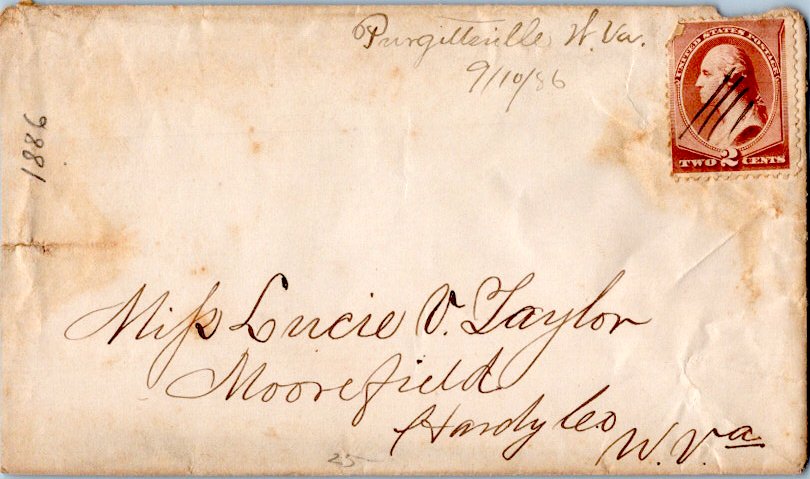 Purgittsville W. Va.
9/10/86
1886
UNITED STATES POSTAGE
TWO 2 CENTS
Miss Lucie V. Taylor
Moorefield
Hardy Co
W. Va
25